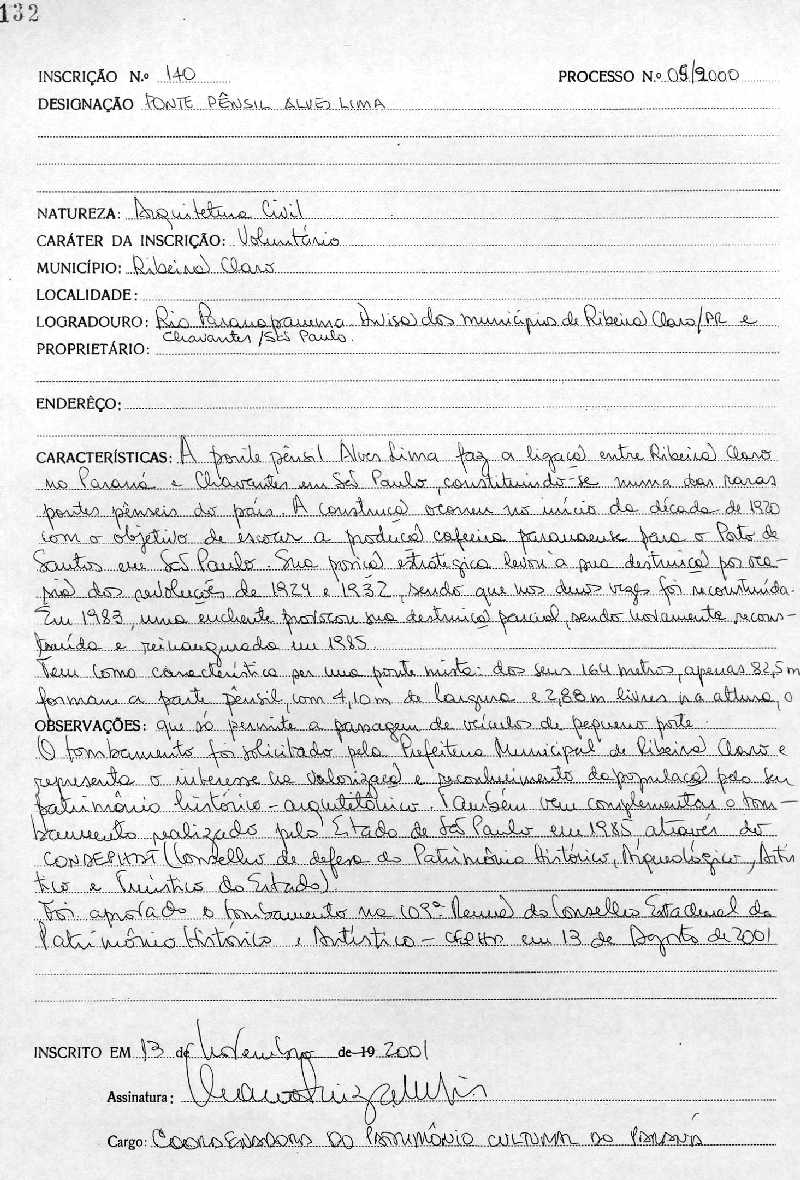 132
INSCRIÇÃO N.º 140 PROCESSO N.º 05/2000
DESIGNAÇÃO PONTE PÊNSIL ALVES LIMA
NATUREZA: Arquitetura Civil
CARÁTER DA INSCRIÇÃO: Voluntário
MUNICÍPIO: Ribeirão Claro
LOCALIDADE:
LOGRADOURO: Rio Paranapanema divisa dos municípios de Ribeirão Claro/PR e
Chavantes/São Paulo.
PROPRIETÁRIO:
ENDERÊÇO:
CARACTERÍSTICAS: A ponte pênsil Alves Lima faz a ligação entre Ribeirão Claro
no Paraná e Chavantes em São Paulo, constituindo-se numa das raras
pontes pênseis do país. A construção ocorreu no início da década de 1920
com o objetivo de escoar a produção cafeeira paranaense para o Porto de
Santos em São Paulo. Sua posição estratégica levou à sua destruição por oca-
sião das revoluções de 1924 e 1932, sendo que nas duas vezes foi reconstruída.
Em 1983, uma enchente provocou sua destruição parcial, sendo novamente recons-
truída e reinaugurada em 1985.
Tem como característica ser uma ponte mista: dos seus 164 metros, apenas 82,5m
formam a parte pênsil, com 4,10m de largura e 2,88m livres na altura, o
OBSERVAÇÕES: que só permite a passagem de veículos de pequeno porte.
O tombamento foi solicitado pela Prefeitura Municipal de Ribeirão Claro e
representa o interesse na valorização e reconhecimento da população pelo seu
patrimônio histórico-arquitetônico. Também vem complementar o tom-
bamento realizado pelo Estado de São Paulo em 1985 através do
CONDEPHAAT (Conselho de defesa do Patrimônio Histórico, Arqueológico, Artís
tico e Turístico do Estado).
Foi aprovado o tombamento na 109ª Reunião do Conselho Estadual do
Patrimônio Histórico e Artístico - CEPHA em 13 de Agosto de 2001
INSCRITO EM 13 de Novembro de 19 2001
Assinatura:
Cargo: COORDENADORA DO PATRIMÔNIO CULTURAL DO PARANÁ